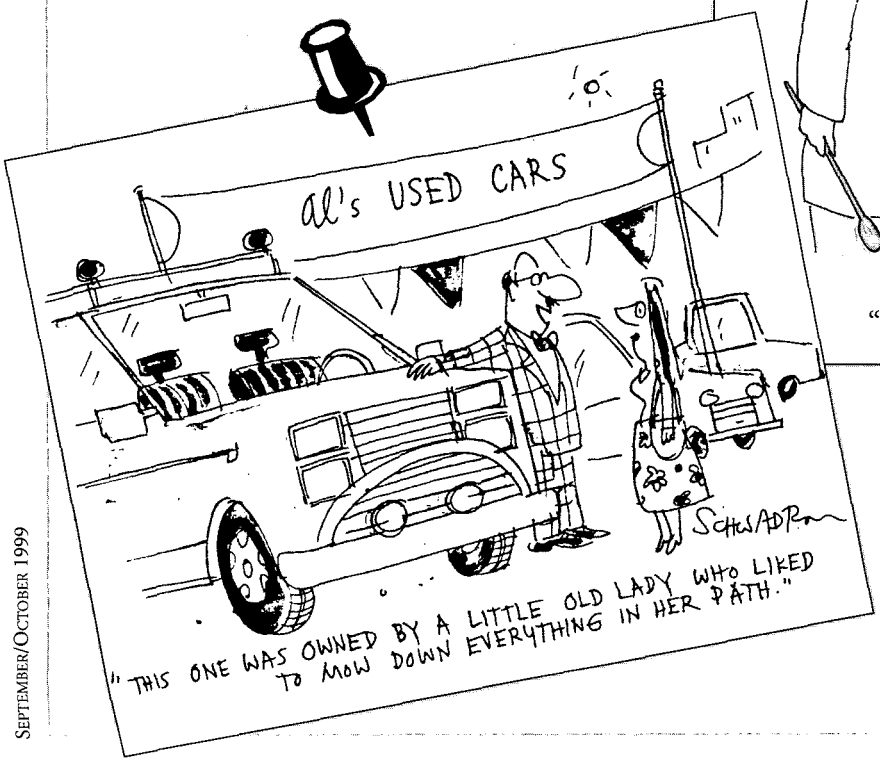 Al's USED CARS
SCHWADRON
"THIS ONE WAS OWNED BY A LITTLE OLD LADY WHO LIKED
TO MOW DOWN EVERYTHING IN HER PATH."
SEPTEMBER/OCTOBER 1999
"